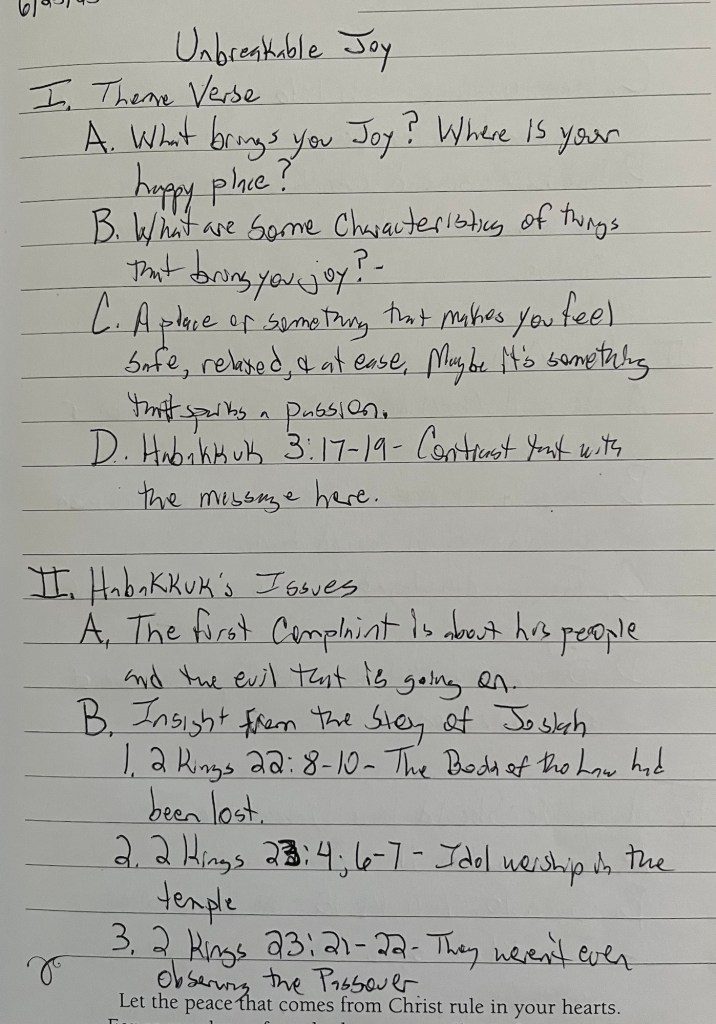 Unbreakable Joy
I. Theme Verse
A. What brings you Joy? Where is your
happy place?
B. What are some characteristics of things
that bring you joy? -
C. A place or something that makes you feel
safe, relaxed, & at ease. Maybe it's something
that sparks a passion.
D. Habakkuk 3:17-19 - Contrast that with
the message here.
II. Habakkuk's Issues
A. The first Complaint is about his people
and the evil that is going on.
B. Insight from the Story of Josiah
1. 2 Kings 22:8-10 - The Book of the Law had
been lost.
2. 2 Kings 23:4; 6-7 - Idol worship in the
temple
3. 2 Kings 23:21-22 - They weren't even
observing the Passover
Let the peace that comes from Christ rule in your hearts.